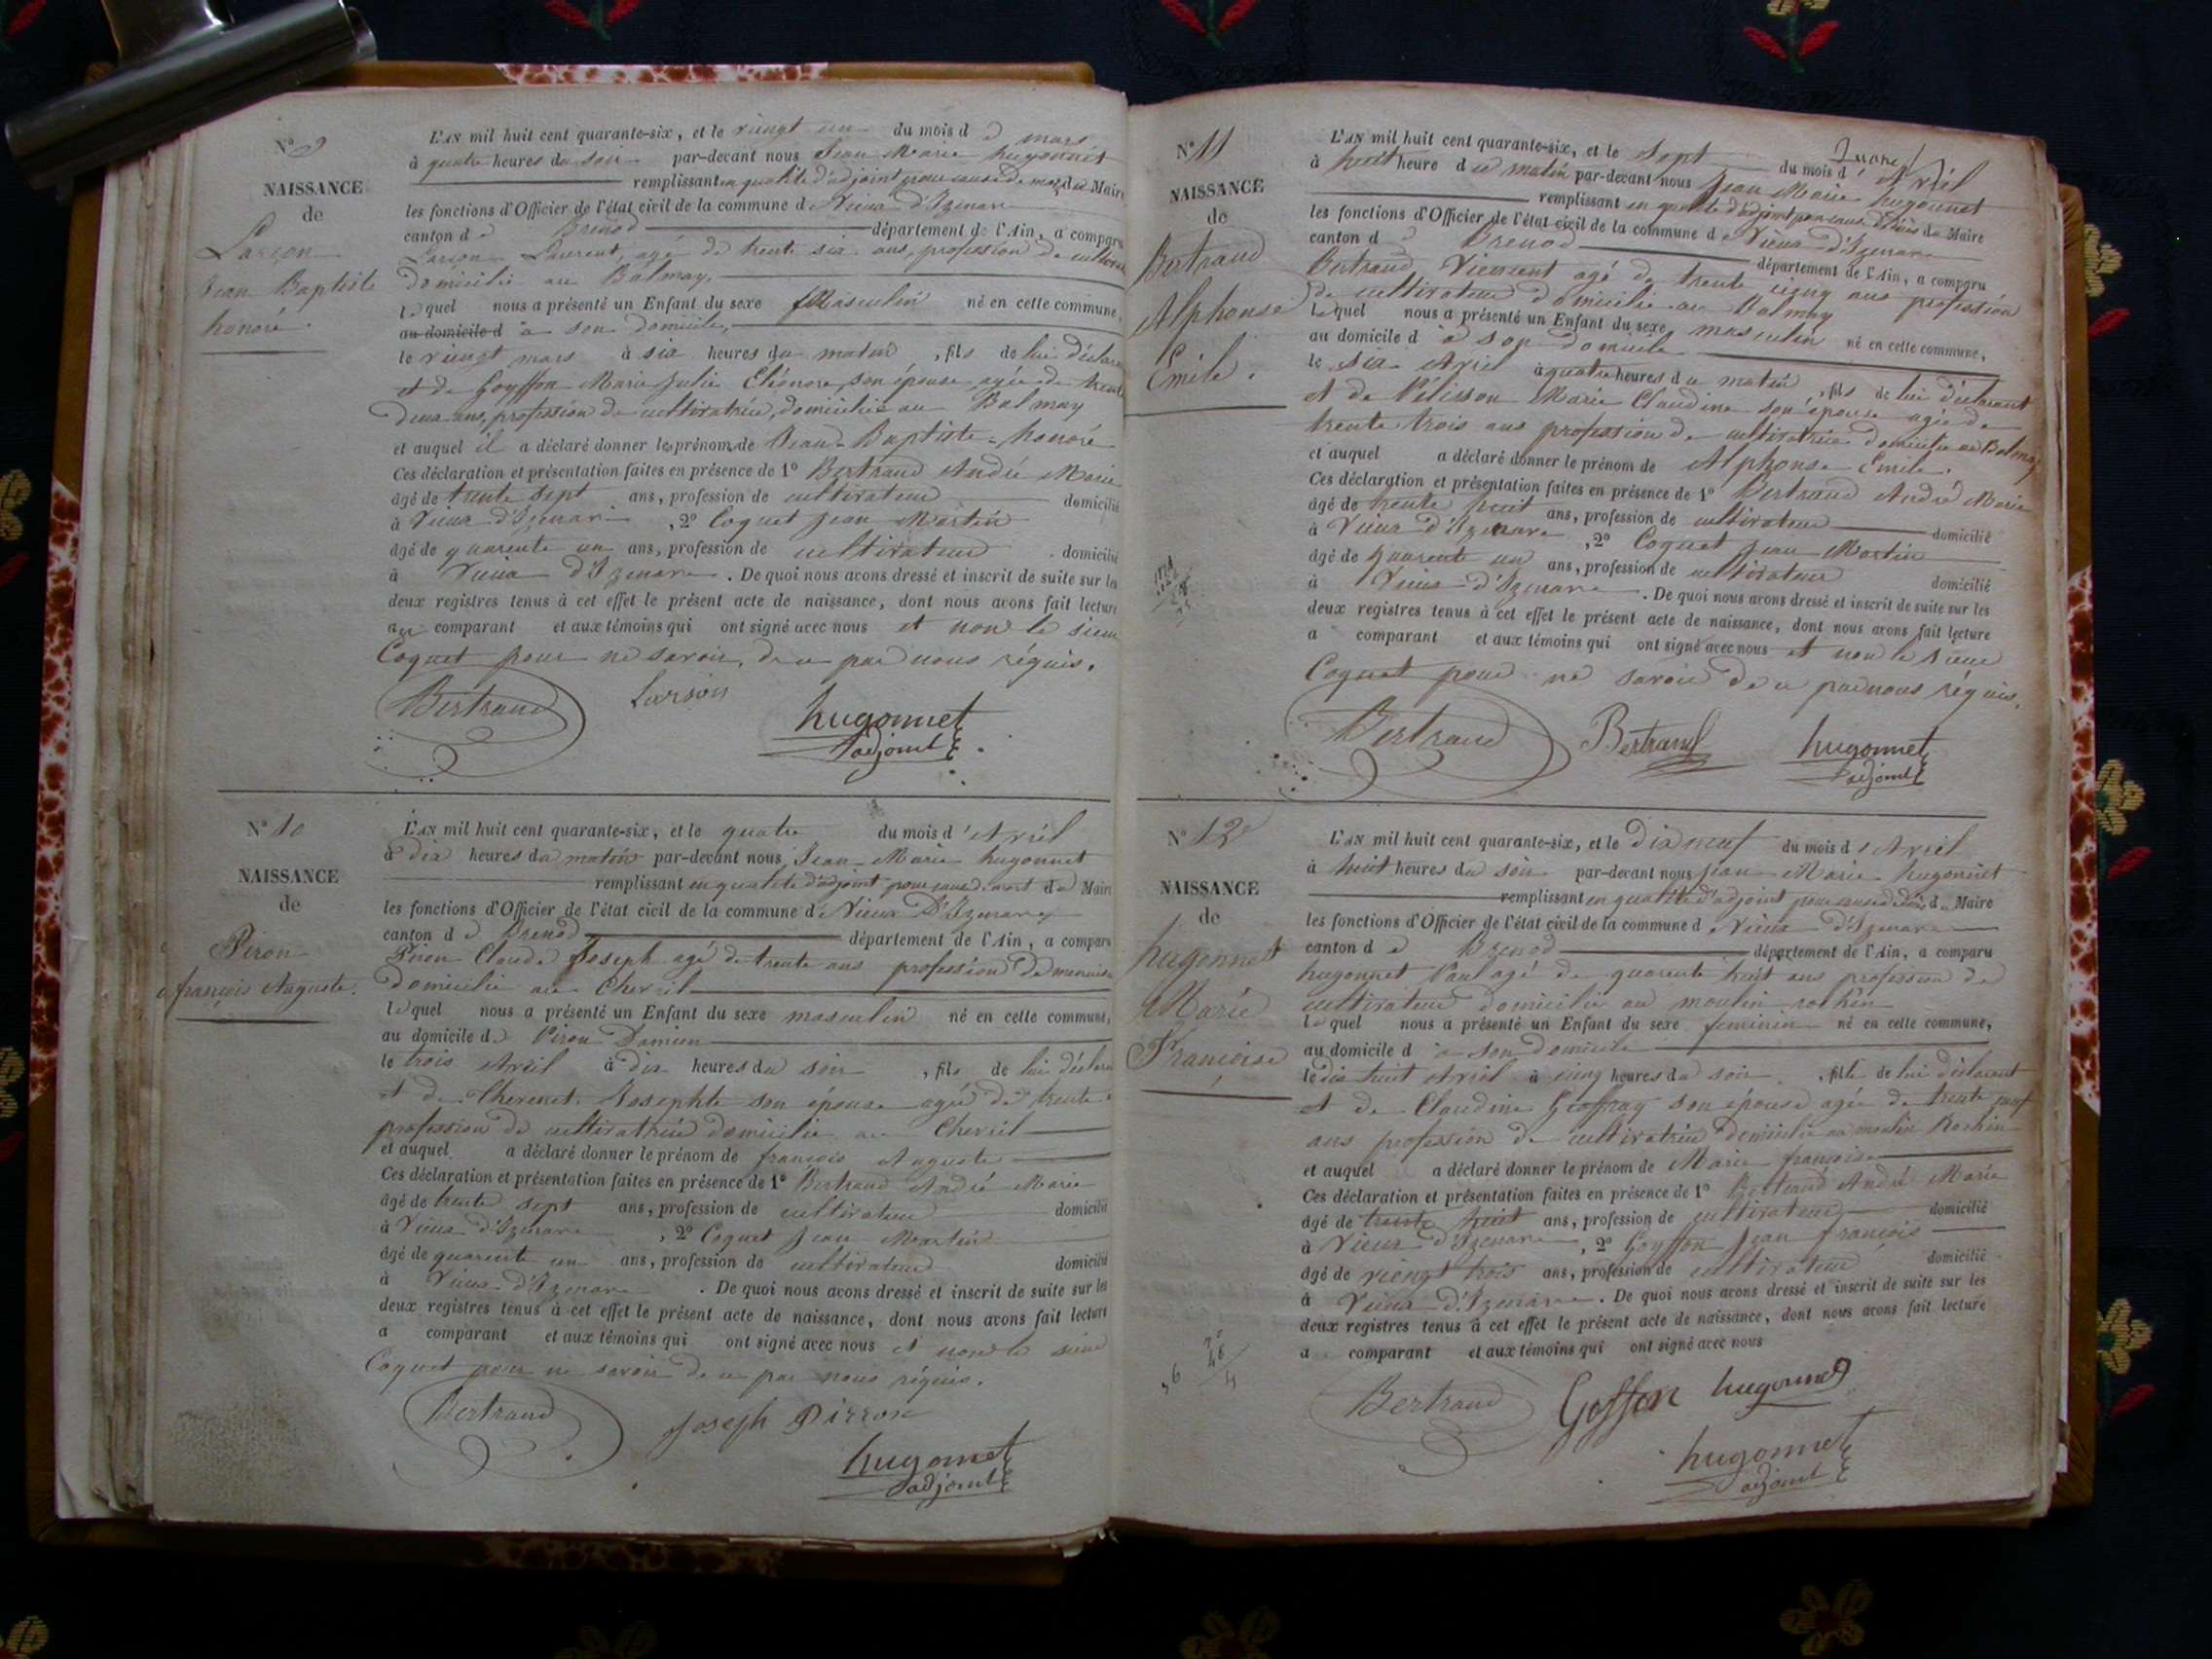 N° 9
NAISSANCE
de
Larçon
Jean Baptiste
honoré.
L'AN mil huit cent quarante-six, et le vingt un du mois d e mars
à quatre heures du soir par-devant nous Jean Marie hugonnet
remplissant en qualité d'adjoint pour cause de mort du Maire
les fonctions d'Officier de l'état civil de la commune de Vieux d'Izenave
canton d e Brenod département de l'Ain, a comparu
Larçon Laurent, agé de trente six ans, profession de cultivateur
domicilié au Balmay.
lequel nous a présenté un Enfant du sexe Masculin né en cette commune,
au domicile d à son domicile,
le vingt mars à six heures du matin, fils de lui déclarant
et de Goyffon Marie Julie Eléonore son épouse agée de trente
deux ans, profession de cultivatrice, domiciliée au Balmay
et auquel il a déclaré donner les prénoms de Jean-Baptiste-honoré
Ces déclaration et présentation faites en présence de 1° Bertrand André Marie
âgé de trente sept ans, profession de cultivateur domicilié
à Vieux d'Izenave, 2° Coquet Jean Martin
âgé de quarente un ans, profession de cultivateur domicilié
à Vieux d'Izenave. De quoi nous avons dressé et inscrit de suite sur les
deux registres tenus à cet effet le présent acte de naissance, dont nous avons fait lecture
au comparant et aux témoins qui ont signé avec nous et non le sieur
Coquet pour ne savoir, de ce par nous réquis.
Bertrand Larson hugonnet
adjoint
N° 10
NAISSANCE
de
Piron
françois Auguste.
L'AN mil huit cent quarante-six, et le quatre du mois d'Avril
à dix heures du matin par-devant nous Jean-Marie hugonnet
remplissant en qualité d'adjoint pour cause de mort du Maire
les fonctions d'Officier de l'état civil de la commune de Vieux D'Izenave
canton d e Brenod département de l'Ain, a comparu
Piron Claude Joseph agé de trente ans profession de menuisier
domicilié au Chevril
lequel nous a présenté un Enfant du sexe masculin né en cette commune,
au domicile de Piron Damien
le trois Avril à dix heures du soir, fils de lui déclarant
et de Josephte son épouse agée de trente
profession de cultivatrice domicilié au Chevril
et auquel a déclaré donner le prénom de françois Auguste
Ces déclaration et présentation faites en présence de 1° Bertrand André Marie
âgé de trente sept ans, profession de cultivateur domicilié
à Vieux d'Izenave, 2° Coquet Jean Martin
âgé de quarente un ans, profession de cultivateur domicilié
à Vieux d'Izenave. De quoi nous avons dressé et inscrit de suite sur les
deux registres tenus à cet effet le présent acte de naissance, dont nous avons fait lecture
a comparant et aux témoins qui ont signé avec nous et non le sieur
Coquet pour ne savoir de ce par nous réquis.
Bertrand Joseph Pirron
hugonnet
adjoint
N° 11
NAISSANCE
de
Bertrand
Alphonse
Emile.
L'AN mil huit cent quarante-six, et le Sept du mois d'Avril
à huit heure du matin par-devant nous Jean Marie hugonnet
remplissant en qualité d'adjoint pour cause de du Maire
les fonctions d'Officier de l'état civil de la commune de Vieux d'Izenave
canton d e Brenod département de l'Ain, a comparu
Bertrand Vincent agé de trente cinq ans profession
de cultivateur domicilié au Balmay
lequel nous a présenté un Enfant du sexe masculin né en cette commune,
au domicile d à son domicile
le six Avril à quatre heures du matin, fils de lui déclarant
et de Pélisson Marie Claudine son épouse agée de
trente trois ans profession de cultivatrice domicilié au Balmay
et auquel a déclaré donner le prénom de Alphonse Emile.
Ces déclaration et présentation faites en présence de 1° Bertrand André Marie
âgé de trente huit ans, profession de cultivateur domicilié
à Vieux d'Izenave, 2° Coquet Jean Martin
âgé de quarente un ans, profession de cultivateur domicilié
à Vieux d'Izenave. De quoi nous avons dressé et inscrit de suite sur les
deux registres tenus à cet effet le présent acte de naissance, dont nous avons fait lecture
a comparant et aux témoins qui ont signé avec nous et non le sieur
Coquet pour ne savoir de ce par nous réquis.
Bertrand Bertrand hugonnet
adjoint
N° 12
NAISSANCE
de
hugonnet
Marie
Francoise
L'AN mil huit cent quarante-six, et le Dix neuf du mois d'Avril
à huit heures du soir par-devant nous Jean Marie hugonnet
remplissant en qualité d'adjoint pour cause de du Maire
les fonctions d'Officier de l'état civil de la commune de Vieux d'Izenave
canton d e Brenod département de l'Ain, a comparu
hugonnet Paul agé de quarente huit ans profession de
cultivateur domicilié au moulin rochin
lequel nous a présenté un Enfant du sexe feminin né en cette commune,
au domicile d à son domicile
le dix huit Avril à cinq heures du soir, fille de lui déclarant
et de Claudine Geoffray son épouse agée de trente neuf
ans profession de cultivatrice domicilié au moulin Rochin
et auquel a déclaré donner le prénom de Marie françoise
Ces déclaration et présentation faites en présence de 1° Bertrand André Marie
âgé de trente huit ans, profession de cultivateur domicilié
à Vieux d'Izenave, 2° Goyffon Jean françois
âgé de vingt trois ans, profession de cultivateur domicilié
à Vieux d'Izenave. De quoi nous avons dressé et inscrit de suite sur les
deux registres tenus à cet effet le présent acte de naissance, dont nous avons fait lecture
a comparant et aux témoins qui ont signé avec nous
Bertrand Goffon hugonnet
hugonnet
adjoint